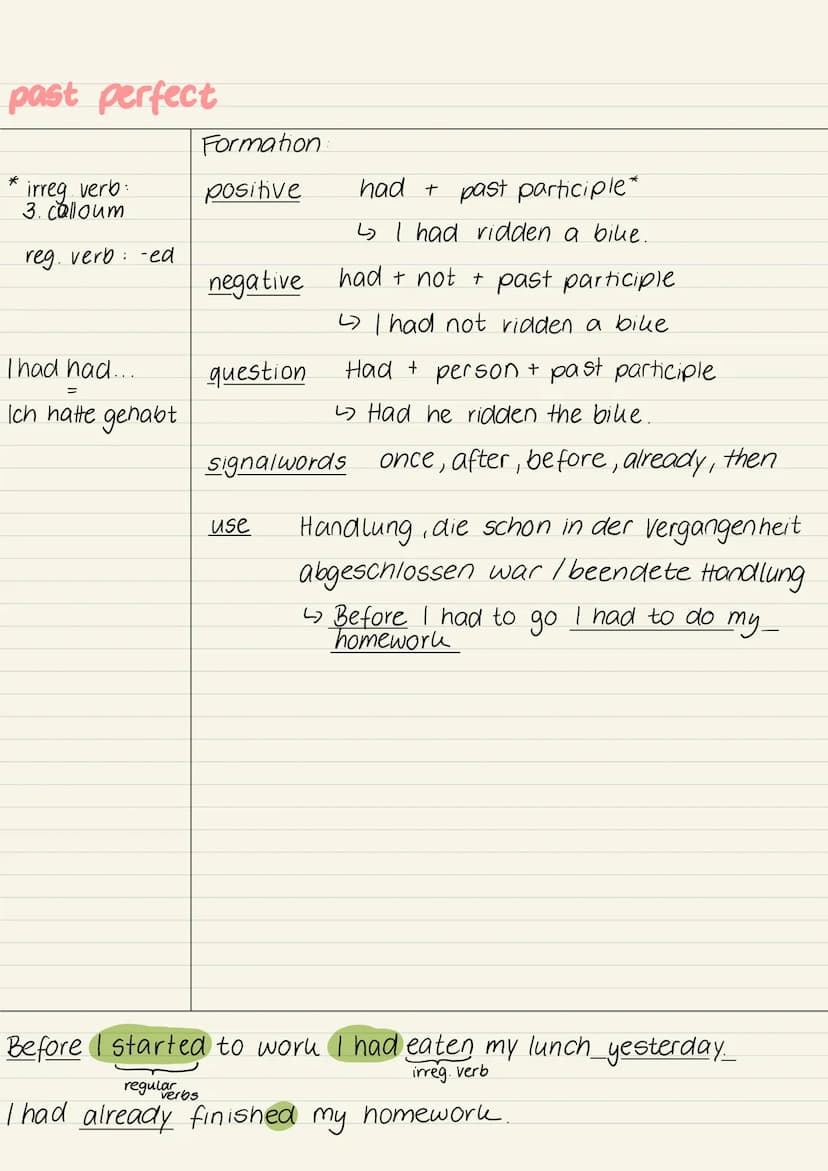 past perfect
Formation:
* irreg. verb:
3. colloum
reg. verb: -ed
I had had...
=
Ich hatte gehabt
positive had + past participle*
↳ I had ridden a bike.
negative had + not + past participle
↳ I had not ridden a bike
question Had + person + past participle
↳ Had he ridden the bike.
signalwords once, after, before, already, then
use Handlung, die schon in der Vergangenheit
abgeschlossen war / beendete Handlung
↳ Before I had to go I had to do my
homework
Before I started to work I had eaten my lunch yesterday.
regular verbs
irreg. verb
I had already finished my homework.